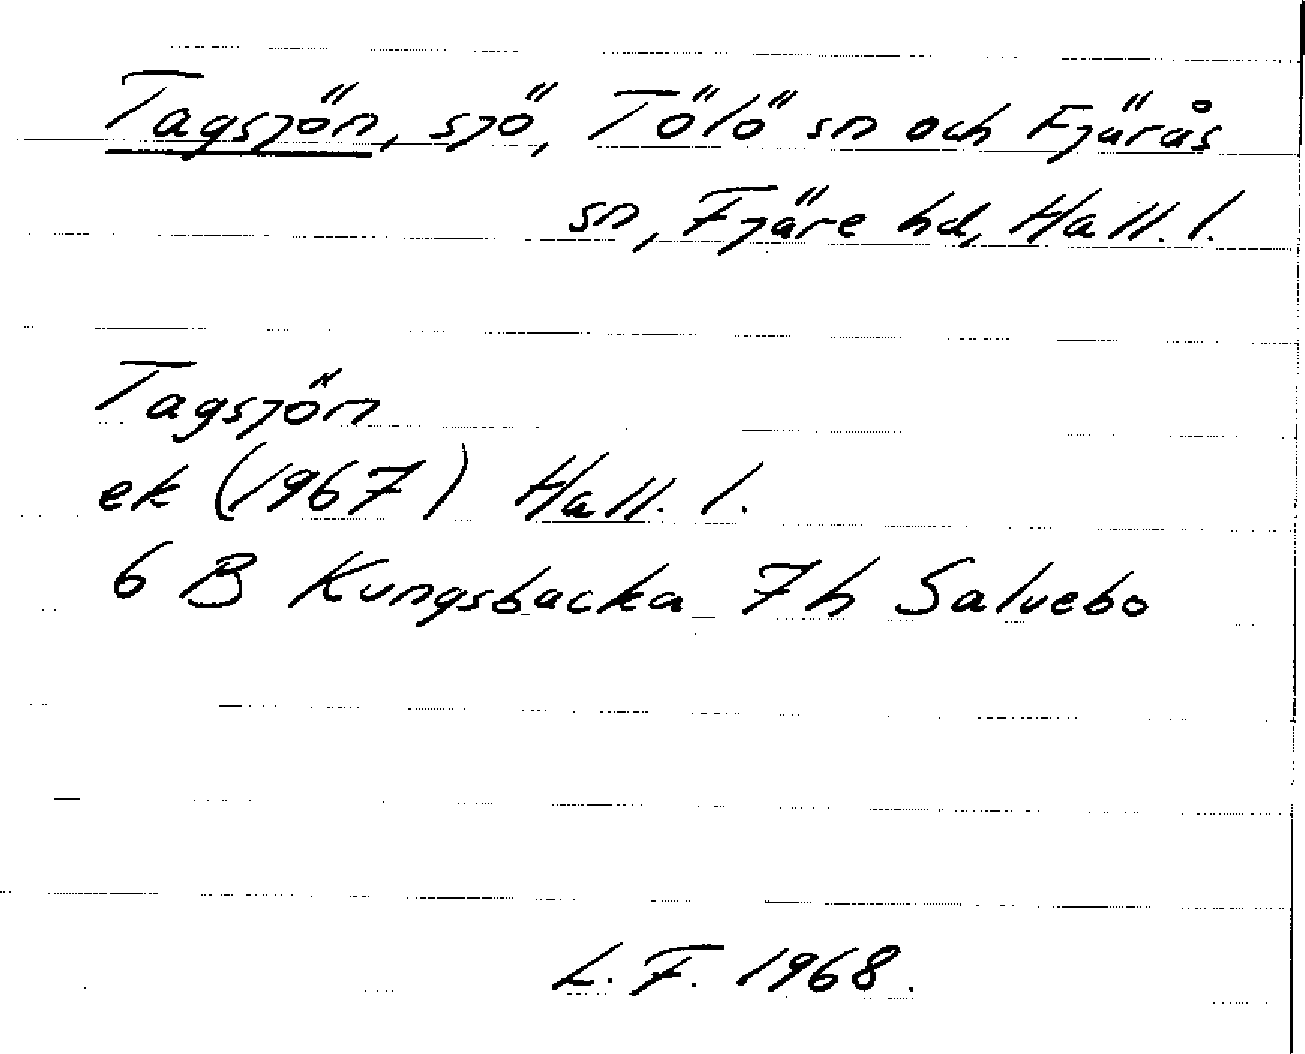 Tagsjön, sjö, Tölö sn och Fjärås
sn, Fjäre hd, Hall. l.
Tagsjön
ek (1967) Hall. l.
6 B Kungsbacka 7h Saluebo
L. F. 1968.